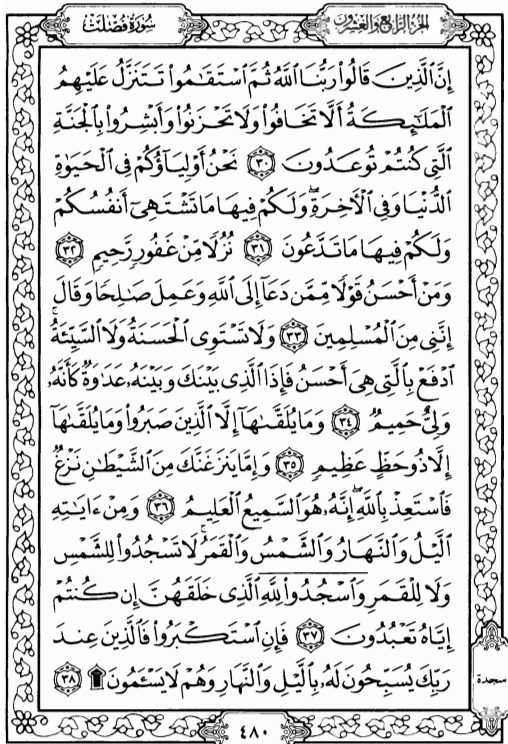 الجزء الرابع والعشرون
سورة فصلت
إِنَّ ٱلَّذِينَ قَالُواْ رَبُّنَا ٱللَّهُ ثُمَّ ٱسْتَقَٰمُواْ تَتَنَزَّلُ عَلَيْهِمُ
ٱلْمَلَٰٓئِكَةُ أَلَّا تَخَافُواْ وَلَا تَحْزَنُواْ وَأَبْشِرُواْ بِٱلْجَنَّةِ
ٱلَّتِى كُنتُمْ تُوعَدُونَ ٣٠ نَحْنُ أَوْلِيَآؤُكُمْ فِى ٱلْحَيَوٰةِ
ٱلدُّنْيَا وَفِى ٱلْأَخِرَةِۖ وَلَكُمْ فِيهَا مَا تَشْتَهِىٓ أَنفُسُكُمْ
وَلَكُمْ فِيهَا مَا تَدَّعُونَ ٣١ نُزُلًا مِّنْ غَفُورٍ رَّحِيمٍ ٣٢
وَمَنْ أَحْسَنُ قَوْلًا مِّمَّن دَعَآ إِلَى ٱللَّهِ وَعَمِلَ صَٰلِحًا وَقَالَ
إِنَّنِى مِنَ ٱلْمُسْلِمِينَ ٣٣ وَلَا تَسْتَوِى ٱلْحَسَنَةُ وَلَا ٱلسَّيِّئَةُۚ
ٱدْفَعْ بِٱلَّتِى هِىَ أَحْسَنُ فَإِذَا ٱلَّذِى بَيْنَكَ وَبَيْنَهُۥ عَدَٰوَةٌ كَأَنَّهُۥ
وَلِىٌّ حَمِيمٌ ٣٤ وَمَا يُلَقَّىٰهَآ إِلَّا ٱلَّذِينَ صَبَرُواْ وَمَا يُلَقَّىٰهَآ
إِلَّا ذُو حَظٍّ عَظِيمٍ ٣٥ وَإِمَّا يَنزَغَنَّكَ مِنَ ٱلشَّيْطَٰنِ نَزْغٌ
فَٱسْتَعِذْ بِٱللَّهِۖ إِنَّهُۥ هُوَ ٱلسَّمِيعُ ٱلْعَلِيمُ ٣٦ وَمِنْ ءَايَٰتِهِ
ٱلَّيْلُ وَٱلنَّهَارُ وَٱلشَّمْسُ وَٱلْقَمَرُۚ لَا تَسْجُدُواْ لِلشَّمْسِ
وَلَا لِلْقَمَرِ وَٱسْجُدُواْ لِلَّهِ ٱلَّذِى خَلَقَهُنَّ إِن كُنتُمْ
إِيَّاهُ تَعْبُدُونَ ٣٧ فَإِنِ ٱسْتَكْبَرُواْ فَٱلَّذِينَ عِندَ
رَبِّكَ يُسَبِّحُونَ لَهُۥ بِٱلَّيْلِ وَٱلنَّهَارِ وَهُمْ لَا يَسْـَٔمُونَ ۩ ٣٨
سجدة
٤٨٠